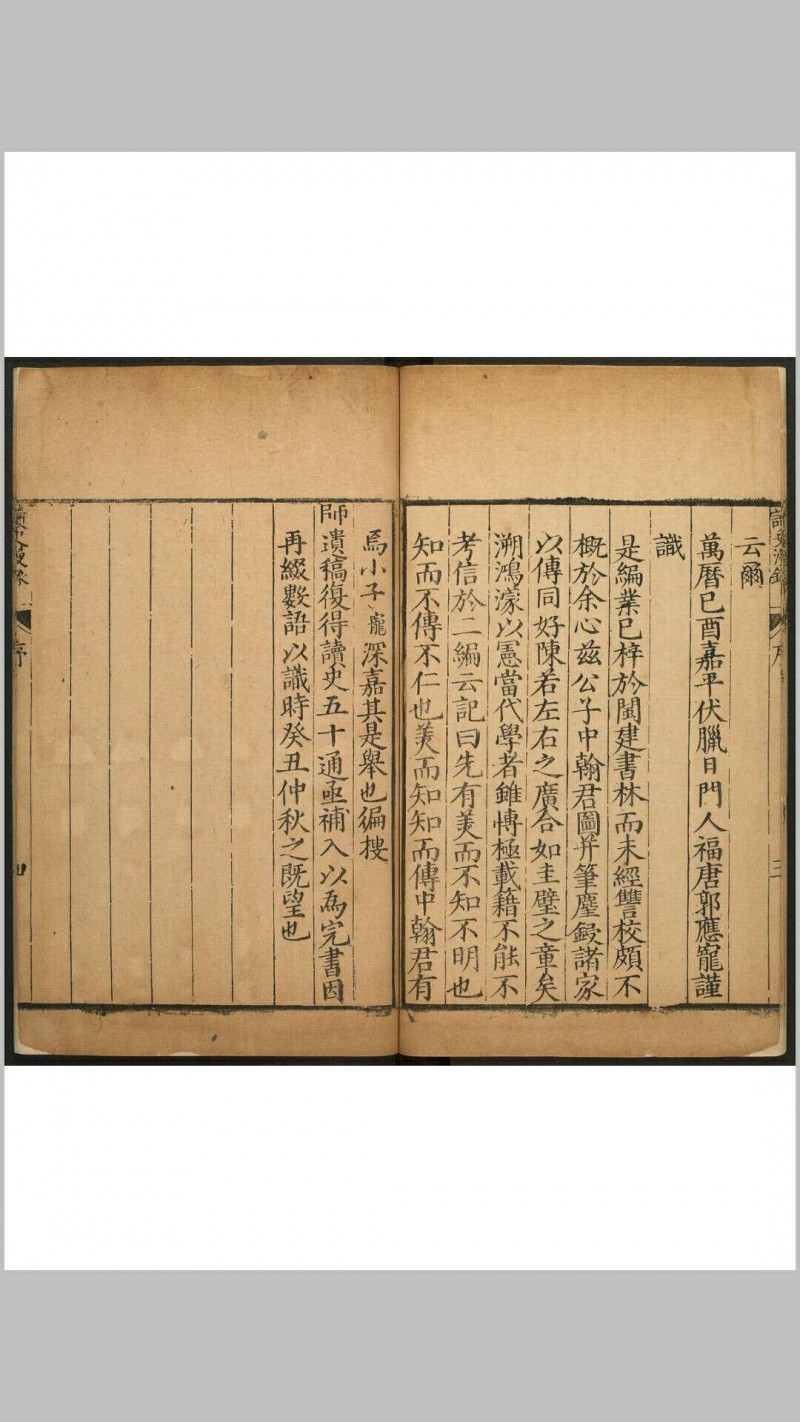 云爾
萬曆已酉嘉平伏臘日門人福唐郭應寵謹
識
是編業已梓於閩建書林而未經讐校頗不
概於余心兹公子中翰君圖并筆麈鋟諸家
以傳同好陳若左右之廣合如圭璧之章矣
溯鴻濛以憲當代學者雖愽極載籍不能不
考信於二編云記曰先有美而不知不明也
知而不傳不仁也羙而知知而傳中翰君有
焉小子寵深嘉其是舉也徧搜
師遺稿復得讀史五十通亟補入以為完書因
再綴數語以識時癸丑仲秋之既望也
序
四